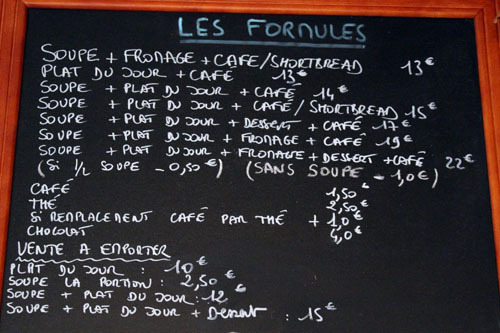 LES FORMULES
SOUPE + FROMAGE + CAFÉ/SHORTBREAD 13€
PLAT DU JOUR + CAFÉ 13€
SOUPE + PLAT DU JOUR + CAFÉ 14€
SOUPE + PLAT DU JOUR + CAFÉ/SHORTBREAD 15€
SOUPE + PLAT DU JOUR + DESSERT + CAFÉ 17€
SOUPE + PLAT DU JOUR + FROMAGE + CAFÉ 19€
SOUPE + PLAT DU JOUR + FROMAGE + DESSERT + CAFÉ 22€
(SI 1/2 SOUPE - 0,50€) (SANS SOUPE - 1,0€)
CAFÉ 1,50€
THÉ 2,50€
SI REMPLACEMENT CAFÉ PAR THÉ + 1,0€
CHOCOLAT 4,0€
VENTE A EMPORTER
PLAT DU JOUR : 10€
SOUPE LA PORTION : 2,50€
SOUPE + PLAT DU JOUR : 12€
SOUPE + PLAT DU JOUR + Dessert : 15€